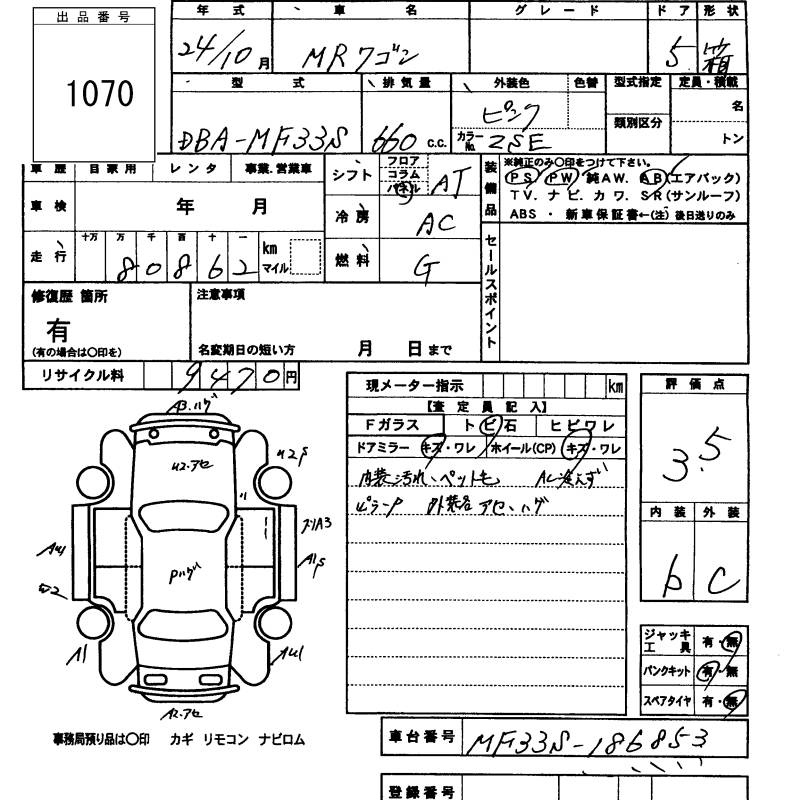 出品番号
1070
年式 車名 グレード ドア 形状
24/10月 MRワゴン 5 箱
型式 排気量 外装色 色替 型式指定 定員・積載
DBA-MF33S 660 c.c. ピンク 類別区分 名
カラーNo. ZSE トン
車歴 自家用 レンタ 事業.営業車
シフト フロア コラム パネル AT
装備品
※純正のみ○印をつけて下さい。
PS PW 純AW. AB(エアバック)
TV. ナビ. カワ. SR(サンルーフ)
ABS ・ 新車保証書←(注) 後日送りのみ
車検 年 月
冷房 AC
走行 十万 万 千 百 十 一 km マイル
80862
燃料 G
セールスポイント
修復歴 箇所 注意事項
有
(有の場合は○印を) 名変期日の短い方 月 日まで
リサイクル料 9470円
現メーター指示 km
【査定員記入】
Fガラス ト ビ 石 ヒビワレ
ドアミラー キズ・ワレ ホイール(CP) キズ・ワレ
内装汚れ、ペット毛 AC冷えず
外装各アセ、ハゲ
評価点
3.5
内装 外装
b C
A3.ハゲ
U2.アセ
U2S
A1S
Pハゲ
A1
A2.アセ
ジャッキ工具 有・無
パンクキット 有・無
スペアタイヤ 有・無
事務局預り品は○印 カギ リモコン ナビロム
車台番号 MF33S-186853
登録番号